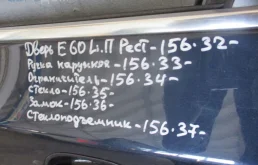 Дверь E60 Li.П Рест-156.32-
Ручка наружноя-156.33-
Ограничитель-156.34-
стекло-156.35-
Замок-156.36-
Стеклоподъемник-156.37-